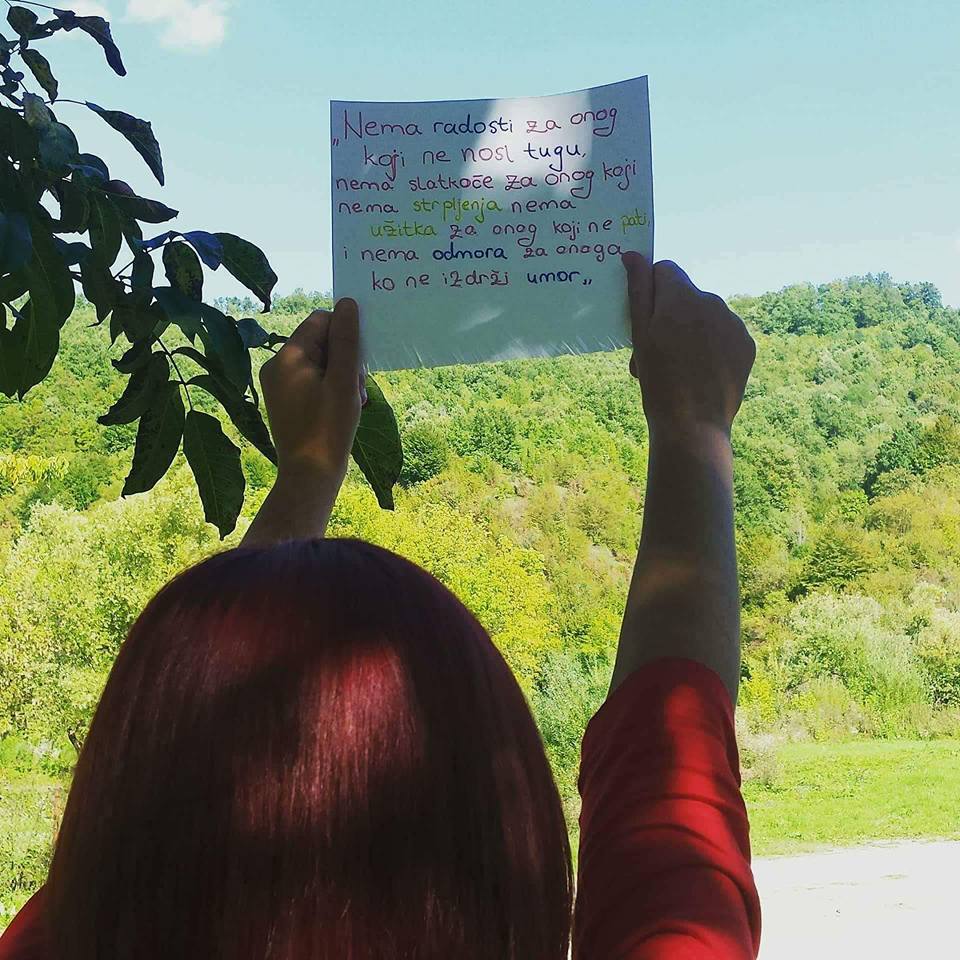 „Nema radosti za onog
koji ne nosi tugu,
nema slatkoće za onog koji
nema strpljenja nema
užitka za onog koji ne pati,
i nema odmora za onoga
ko ne izdrži umor„